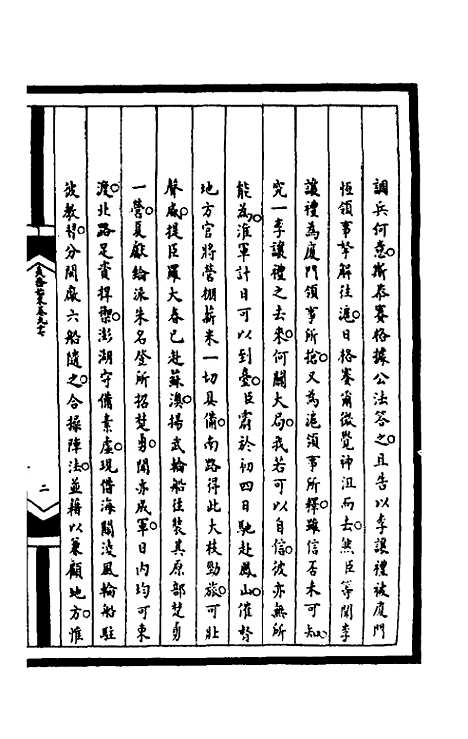 調兵何意斯恭塞格據公法答之且告以李讓禮被廈門
恆領事拏解往滬日格賽甯微覺沛沮而去然臣等聞李
讓禮為廈門領事所搶又為滬領事所釋雖信否未可知
究一李讓禮之去來何關大局我若可以自信彼亦無所
能為淮軍計日可以到臺臣霨於初四日馳赴鳳山催督
地方官將營棚薪米一切具備南路得此大枝勁旅可壯
聲威提臣羅大春已赴蘇澳揚武輪船往裝其原部楚勇
一營夏獻綸派朱名登所招楚勇聞亦成軍日內均可東
渡北路足資捍禦澎湖守備素虛現借海關淩風輪船駐
彼教習分閩廠六船隨之合操陣法並藉以兼顧地方惟
二